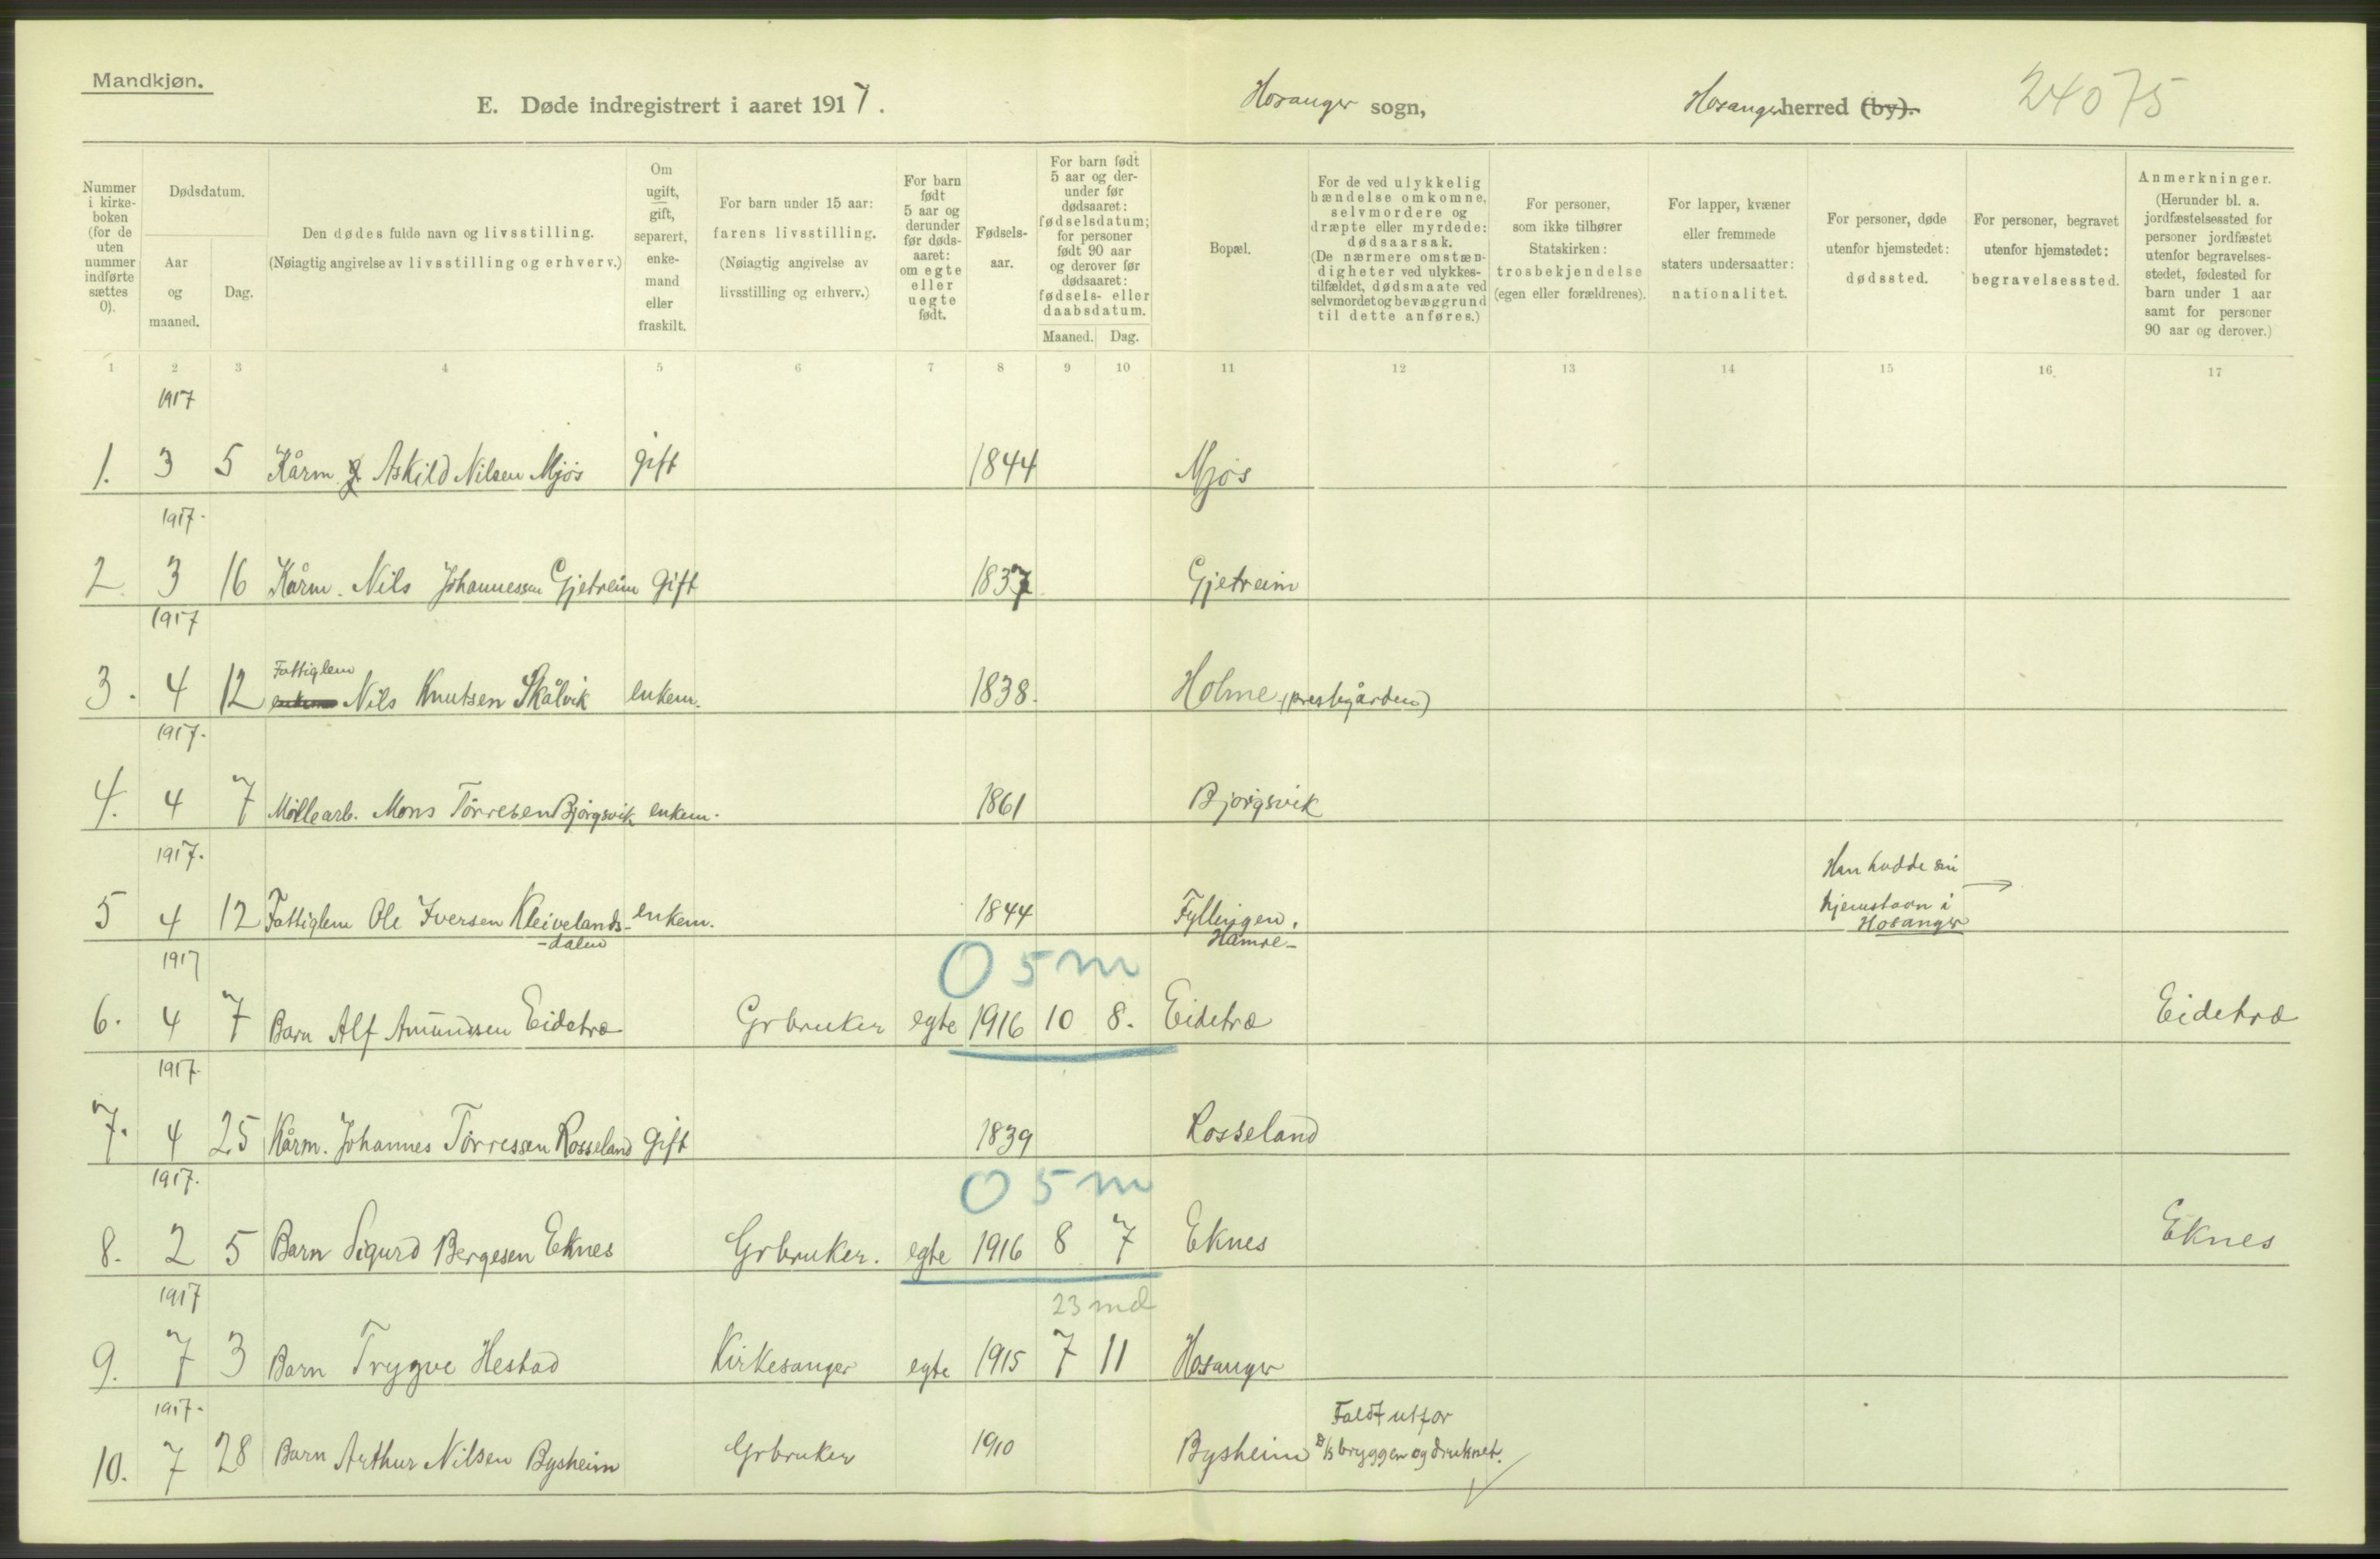 Mandkjøn.
E. Døde indregistrert i aaret 1917.
Hosanger sogn,
Hosanger herred (by).
24075
Nummer i kirke-boken (for de uten nummer indførte sættes 0).
Dødsdatum.
Aar og maaned.
Dag.
Den dødes fulde navn og livsstilling.
(Nøiagtig angivelse av livsstilling og erhverv.)
Om ugift, gift, separert, enke-mand eller fraskilt.
For barn under 15 aar: farens livsstilling.
(Nøiagtig angivelse av livsstilling og erhverv.)
For barn født 5 aar og derunder før døds-aaret: om egte eller uegte født.
Fødsels-aar.
For barn født 5 aar og der-under før dødsaaret: fødselsdatum; for personer født 90 aar og derover før dødsaaret: fødsels- eller daabsdatum.
Maaned. Dag.
Bopæl.
For de ved ulykkelig hændelse omkomne, selvmordere og dræpte eller myrdede: dødsaarsak.
(De nærmere omstæn-digheter ved ulykkes-tilfældet, dødsmaate ved selvmordet og bevæggrund til dette anføres.)
For personer, som ikke tilhører Statskirken: trosbekjendelse (egen eller forældrenes).
For lapper, kvæner eller fremmede staters undersaatter: nationalitet.
For personer, døde utenfor hjemstedet: dødssted.
For personer, begravet utenfor hjemstedet: begravelsessted.
Anmerkninger.
(Herunder bl. a. jordfæstelsessted for personer jordfæstet utenfor begravelses-stedet, fødested for barn under 1 aar samt for personer 90 aar og derover.)
1 2 3 4 5 6 7 8 9 10 11 12 13 14 15 16 17
1917
1. 3 5 Kårm. Askild Nilsen Mjøs gift 1844 Mjøs
1917.
2. 3 16 Kårm. Nils Johannessen Gjetreim Gift 1837 Gjetreim
1917
Fattiglem
3. 4 12 Nils Knutsen Skålvik enkem. 1838. Holme (prestegården)
1917.
4. 4 7 Möllearb. Mons Törresen Bjørgsvik enkem. 1861 Bjørgsvik
1917.
5 4 12 Fattiglem Ole Iversen Kleivelands- enkem. 1844 Fyllingen. Han hadde sin
-dalen Hamre- hjemstavn i
Hosanger
1917
0 5 m
6. 4 7 Barn Alf Amundsen Eidetræ Grbruker egte 1916 10 8. Eidetræ Eidetræ
1917.
7. 4 25 Kårm. Johannes Törressen Rosseland Gift 1839 Rosseland
1917.
0 5 m
8. 2 5 Barn Sigurd Bergesen Eknes Grbruker. egte 1916 8 7 Eknes Eknes
1917
23 md
9. 7 3 Barn Trygve Hestad Kirkesanger egte 1915 7 11 Hosanger
1917.
Faldt utfor
10. 7 28 Barn Arthur Nilsen Bysheim Grbruker 1910 Bysheim bryggen og druknet.